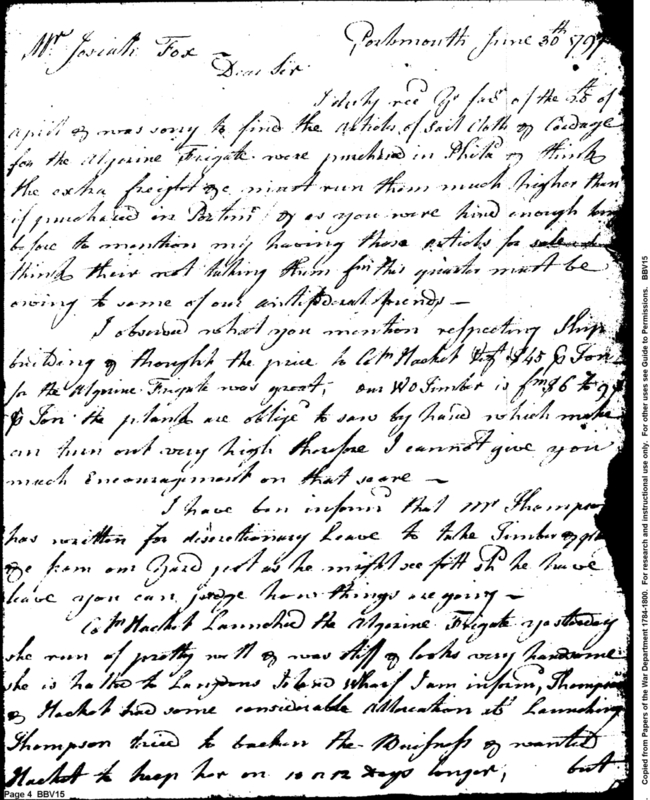 Mr Josiah Fox
Portsmouth June 30th 1797
Dear Sir
I duly recd Yr favr of the 25th of
April & was sorry to find the articles of Sail Cloth & Cordage
for the Algerine Frigate were purchased in Phila & think
the extra freight &c must run them much higher than
if purchased in Portsmo & as you were kind enough
before to mention my having those articles for
think their not taking them fm this quarter must be
owing to some of our antifederal friends —
I observed what you mention respecting Ship
building & thought the price to Cotn Hacket $45 ⅌ Ton
for the Algerine Frigate was great, our WO Timber is fm $6 to
⅌ Ton the plank are oblige to saw by hand which make
turn out very high therefore I cannot give you
much Encouragement on that score —
I have ben informd that Mr Thompson
has written for discretionary Leave to take Timber
&c from our Yard just as he might see fitt shd he have
leave you can judge how things are going —
Coln Hacket Launched the Algerine Frigate yesterday
she run of pretty well & was stiff & looks very handsome
she is halled to Langdons Island Wharf I am informd, Thompson
& Hacket had some considerable altercation at Launching
Thompson tried to backen the Buisness & wanted
Hacket to keep her on 10 or 12 Days longer, but
Page 4 BBV15
Copied from Papers of the War Department 1784-1800. For research and instructional use only. For other uses see Guide to Permissions. BBV15